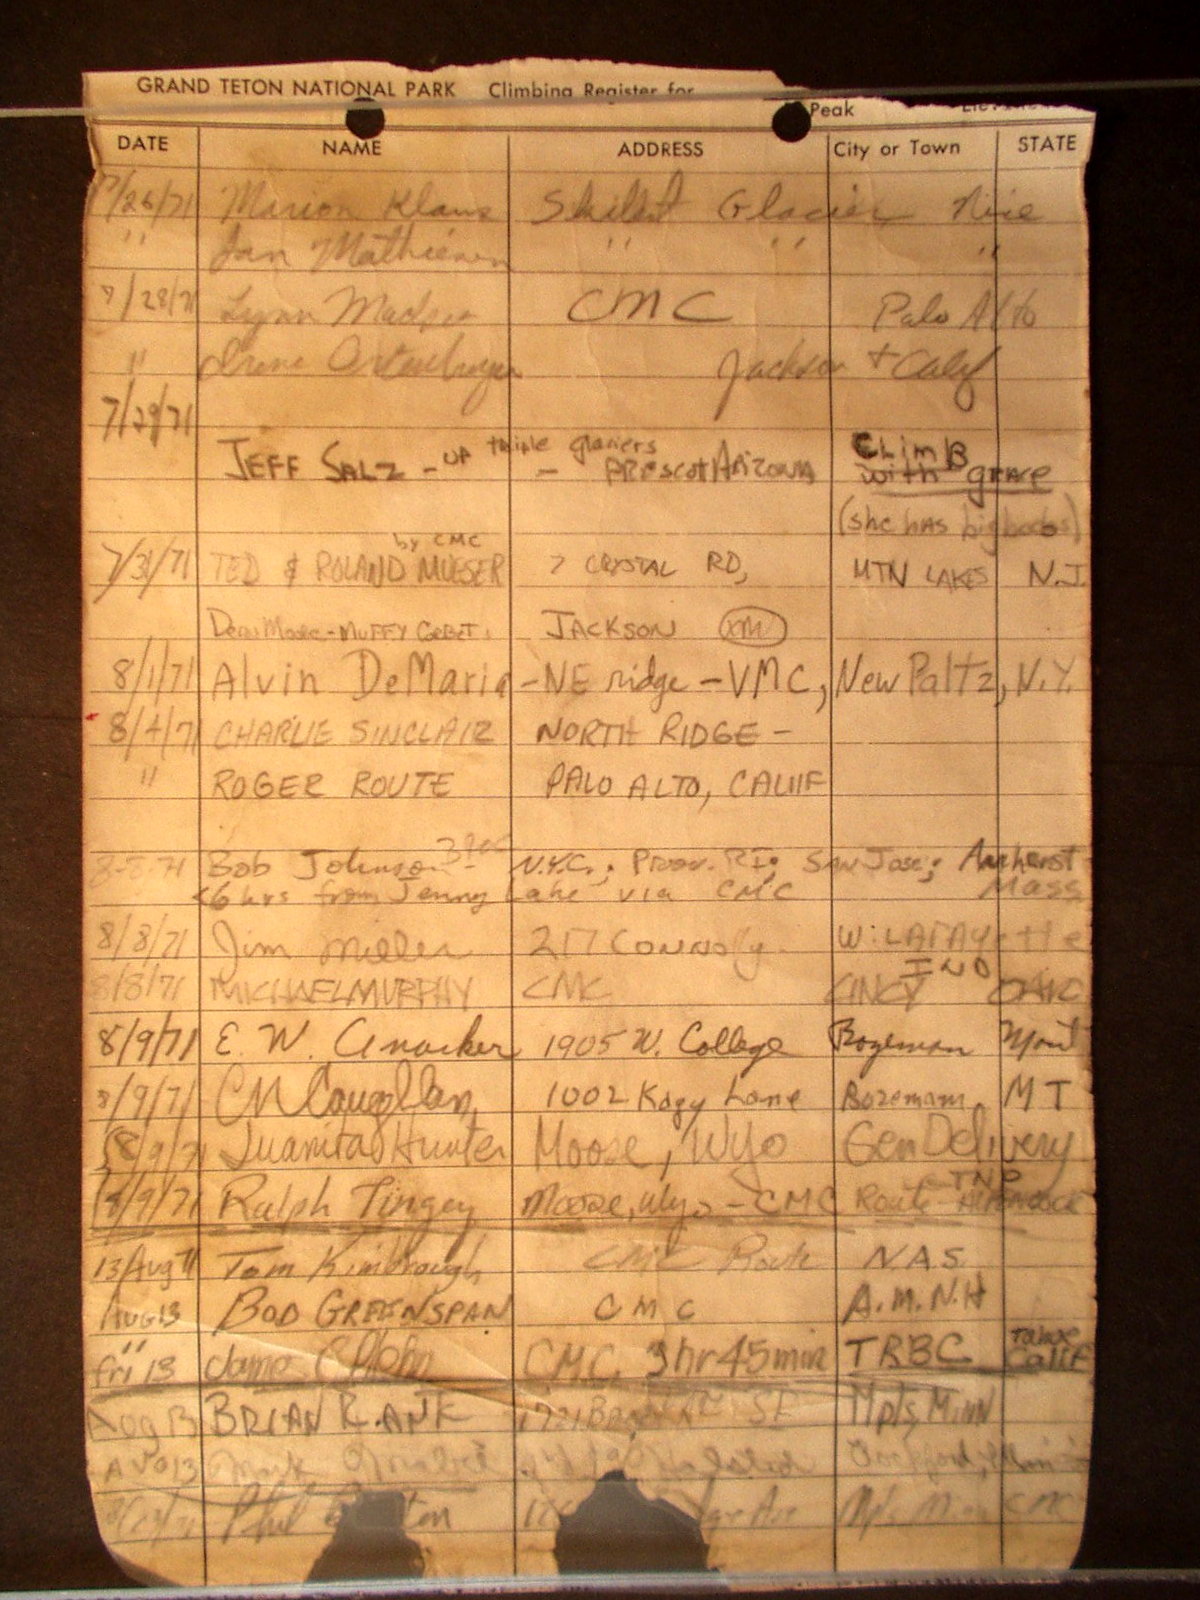 GRAND TETON NATIONAL PARK Climbing Register for Peak
DATE NAME ADDRESS City or Town STATE
7/26/71 Marion Klaus Skillet Glacier, Nice
" Jan Mathiesen " " "
7/28/71 Lynn CMC Palo Alto
" Irene Ortenburger Jackson + Calif
7/29/71
JEFF SALZ - UP triple glaciers - PRESCOT ARIZONA CLimB with grace
(she has big boobs)
by CMC
7/31/71 TED & ROLAND MUESER 7 CRYSTAL RD, MTN LAKES N.J.
Dean Moore - MUFFY CORBET, JACKSON
8/1/71 Alvin DeMaria - NE ridge - VMC, New Paltz, N.Y.
8/4/71 CHARLIE SINCLAIR NORTH RIDGE -
" ROGER ROUTE PALO ALTO, CALIIF
71 Bob Johnson - N.Y.C.; Prov. RI; San Jose; Amherst
<6 hrs from Jenny Lake via CMC Mass
8/8/71 Jim Miller 217 W. LAFAYette
IND
8/8/71 MICHAEL MURPHY CMC CINCY OHIO
8/9/71 E. W. Anacker 1905 W. College Bozeman Mont
8/9/71 1002 Kagy Lane Bozemann MT
8/9/71 Juanita Hunter Moose, Wyo Gen Delivery
8/9/71 Ralph Tingey Moose, Wyo - CMC Route
13/Aug 71 Tom Kimbrough CMC Route N.A.S.
AUG 13 BOD GREENSPAN CMC A.M.N.H
" Fri 13 CMC 3hr 45min TRBC Tahoe Calif
Aug 13 BRIAN R. ANK SE Mpls MINN
AUG 13 Mark
Phil CMC